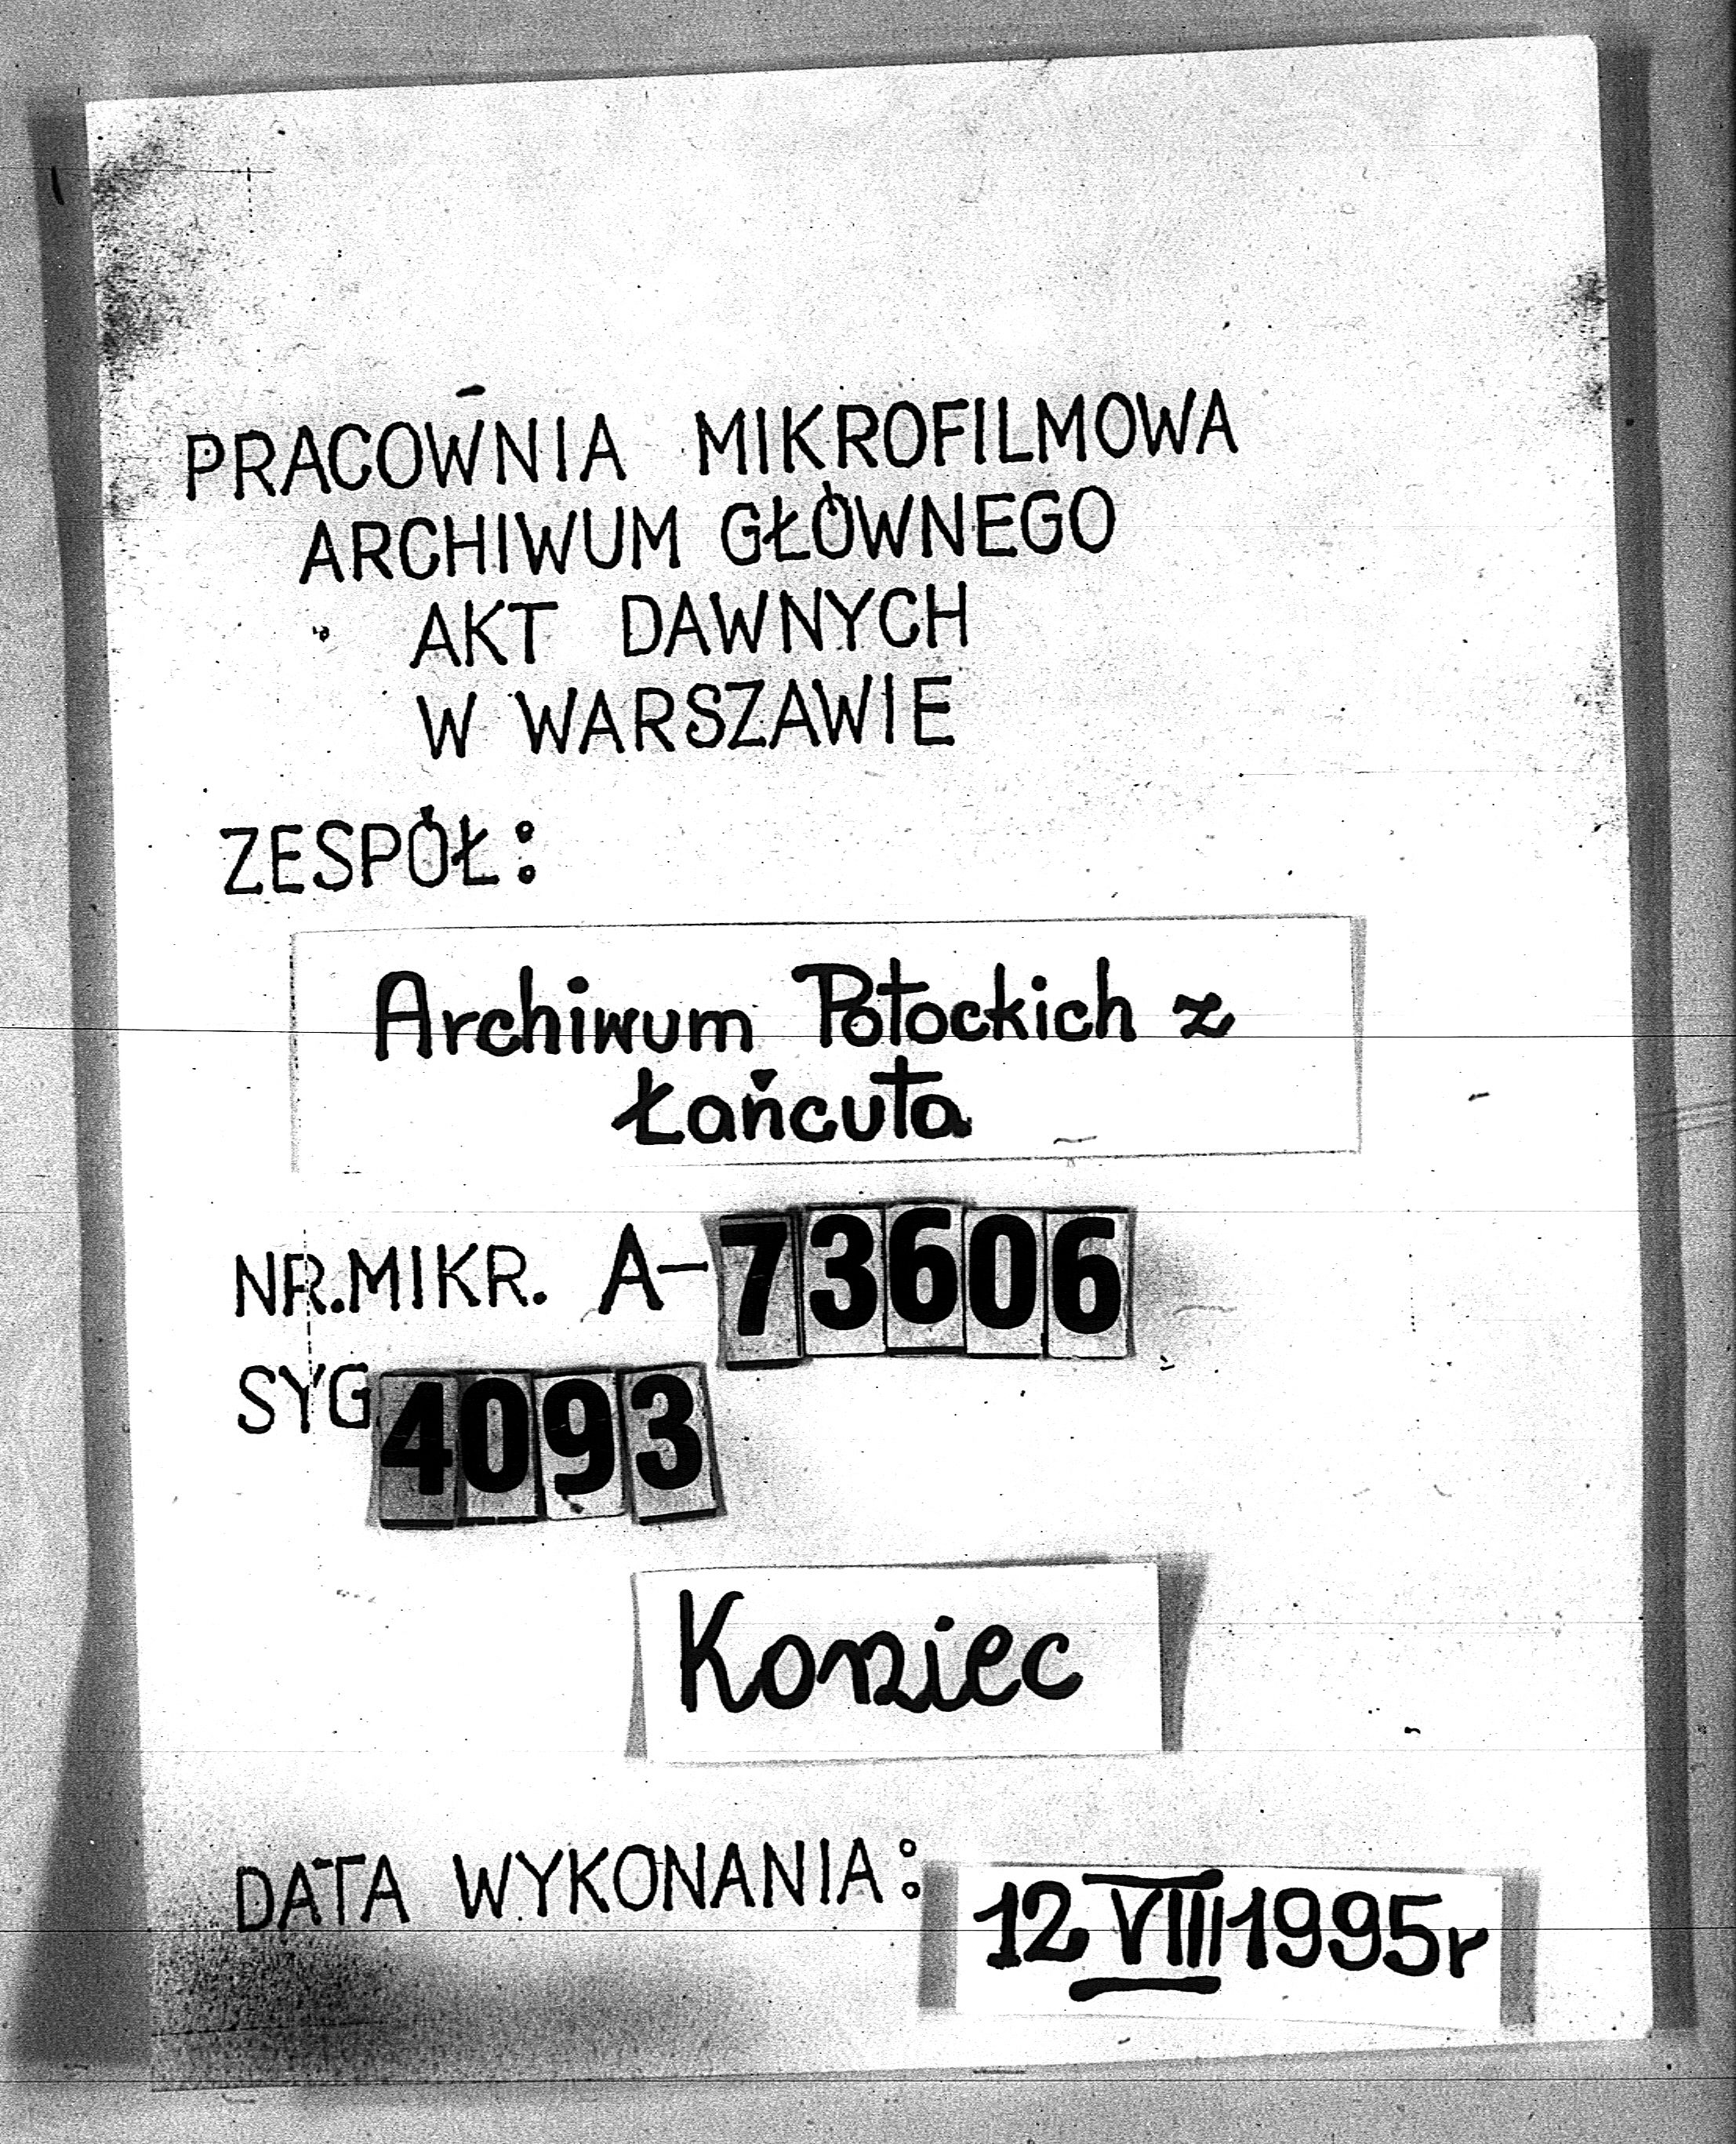 PRACOWNIA MIKROFILMOWA
ARCHIWUM GŁÓWNEGO
AKT DAWNYCH
W WARSZAWIE
ZESPÓŁ:
Archiwum Potockich z
Łańcuta
NR.MIKR. A-73606
SYG 4093
Koniec
DATA WYKONANIA: 12 VIII 1995r